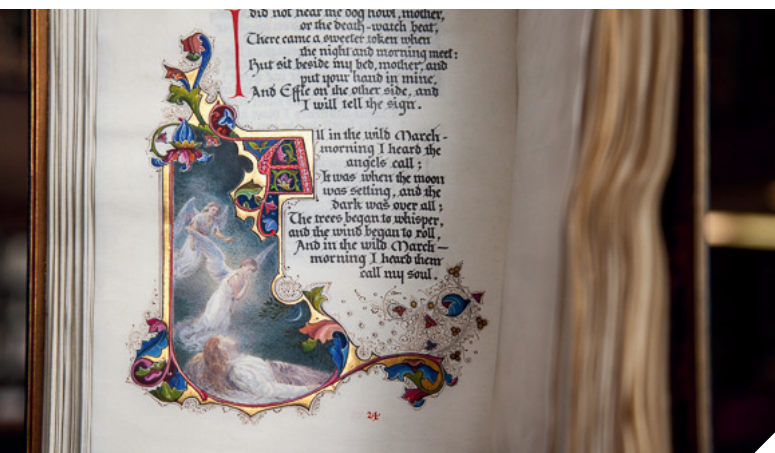 I did not hear the dog howl, mother,
or the death-watch beat,
There came a sweeter token when
the night and morning meet:
But sit beside my bed, mother, and
put your hand in mine,
And Effie on the other side, and
I will tell the sign.
All in the wild March-
morning I heard the
angels call;
It was when the moon
was setting, and the
dark was over all;
The trees began to whisper,
and the wind began to roll,
And in the wild March-
morning I heard them
call my soul.